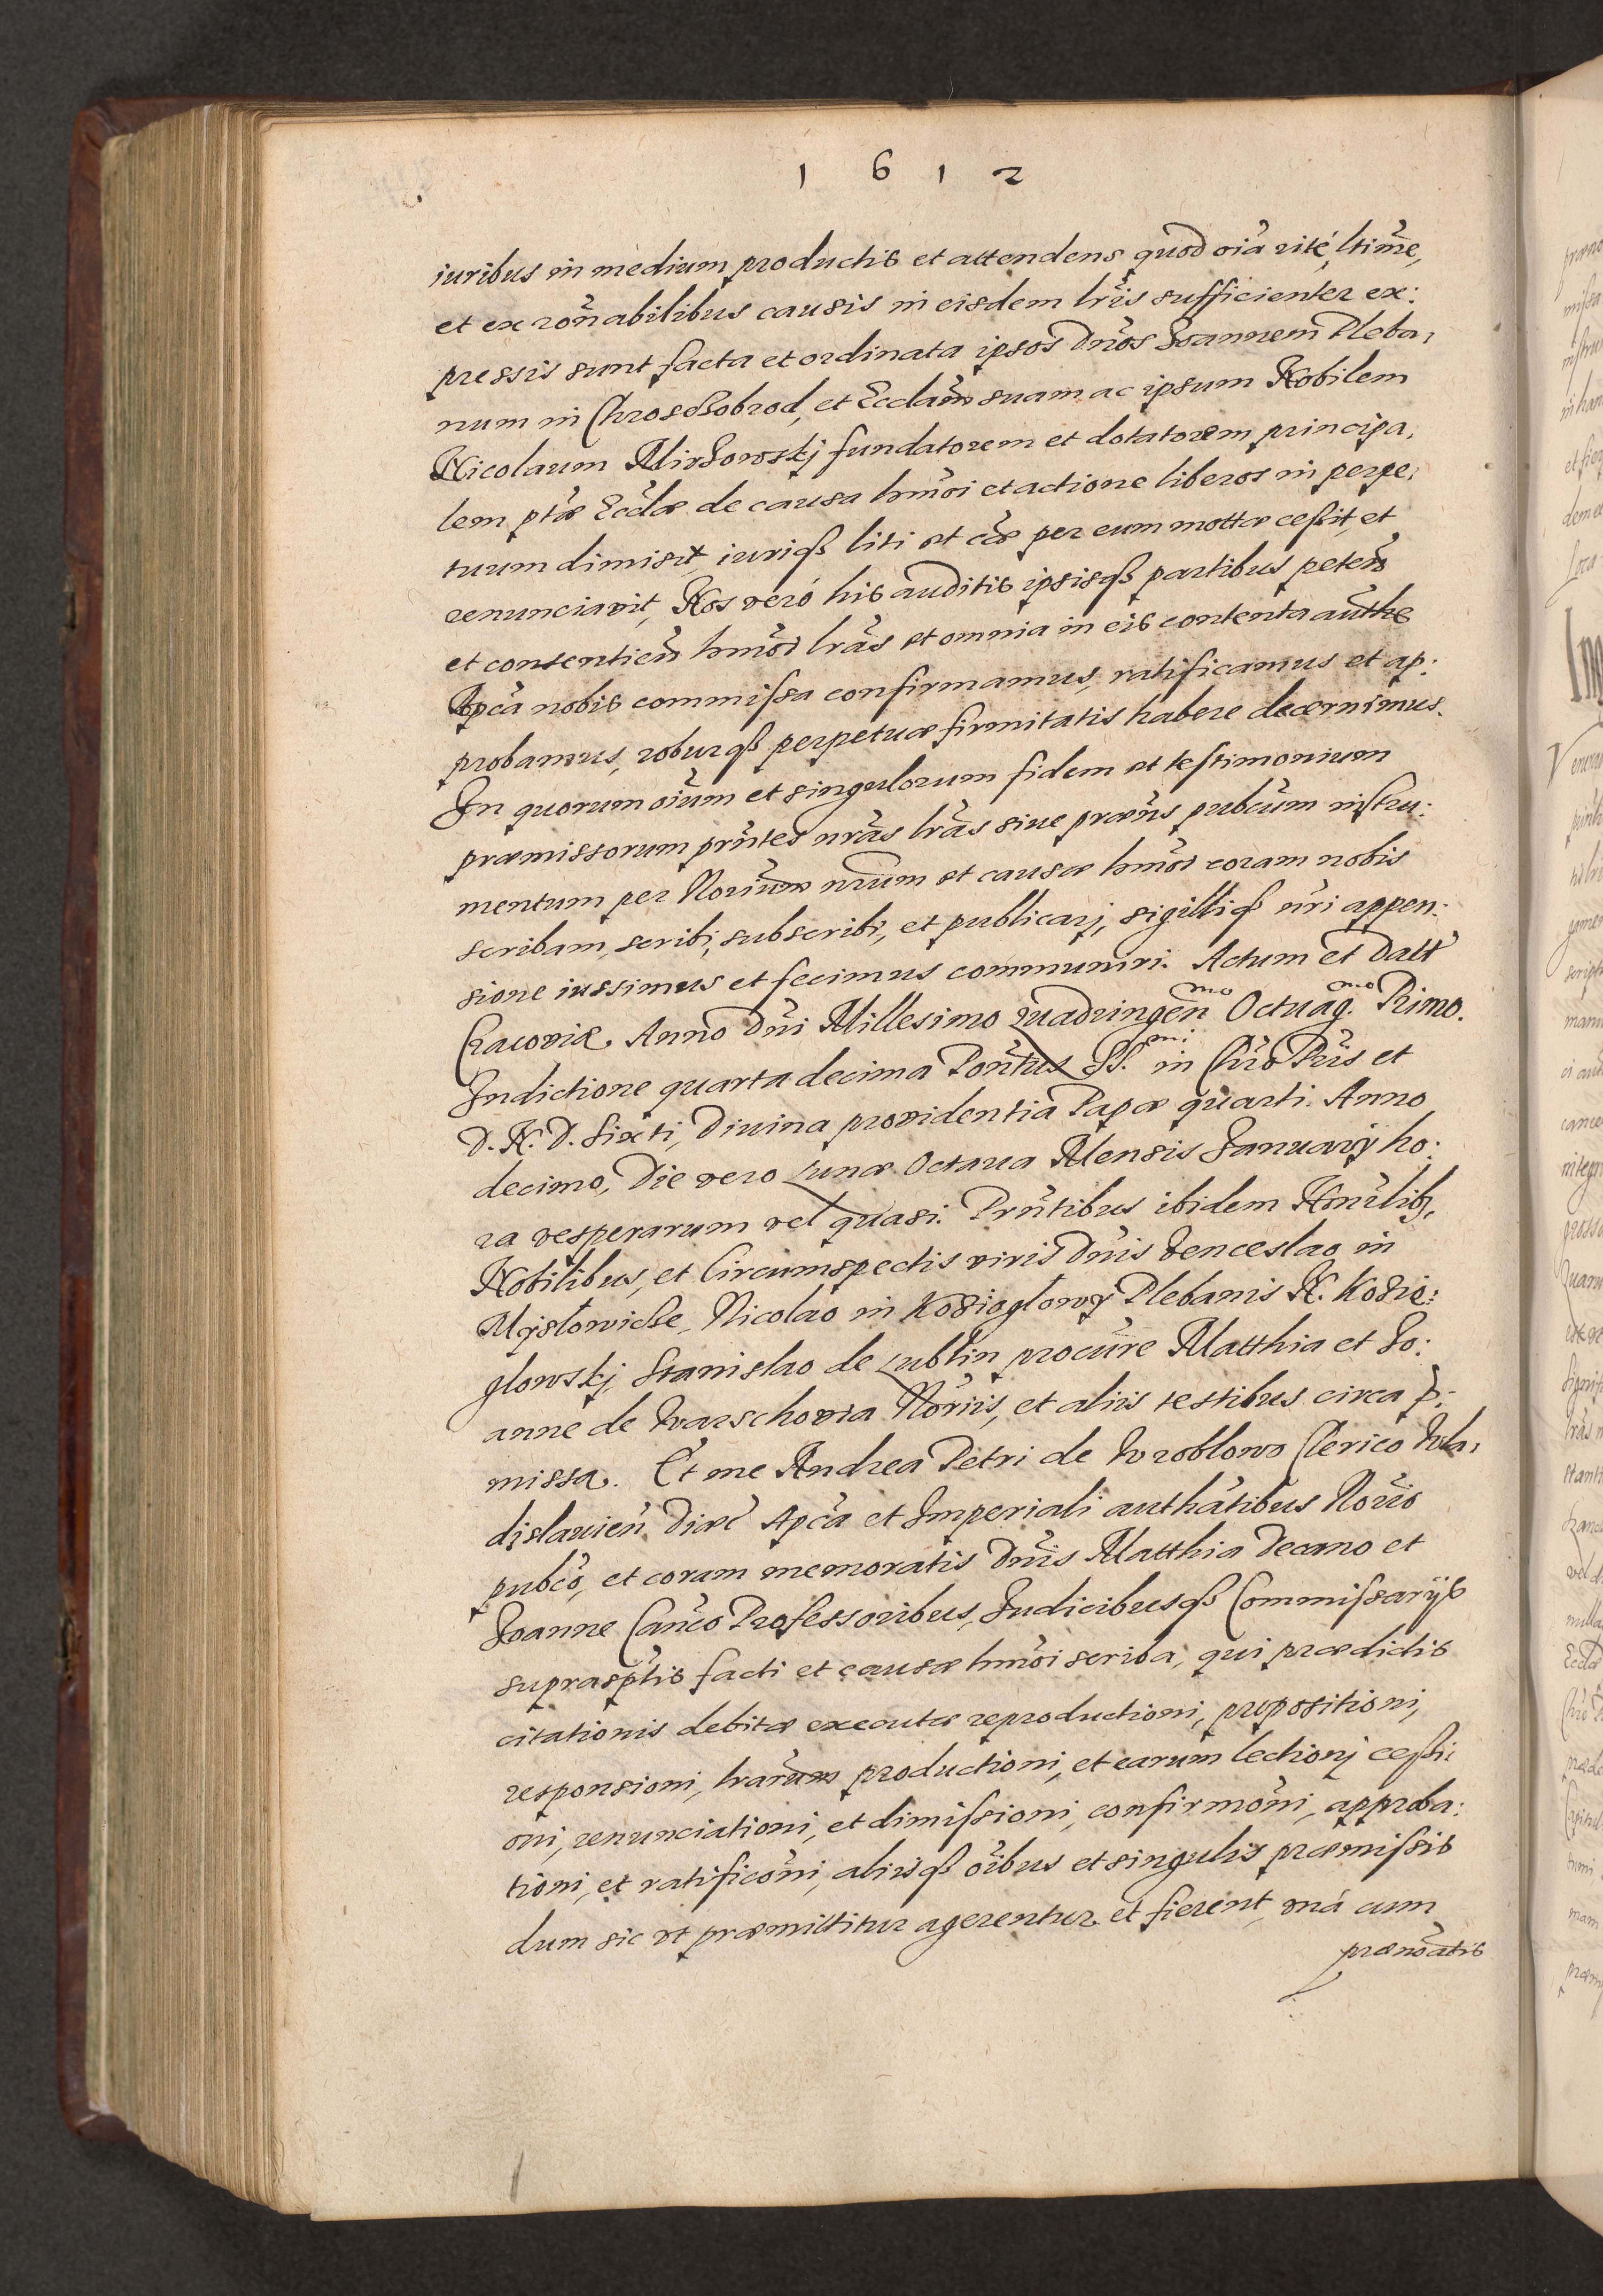 1612
iuribus in medium productis et attendens quod oiã rité, ltimẽ,
et ex rõnabilibus causis in eisdem lrĩs sufficienter ex:
pressis sunt facta et ordinata ipsos Dños Joannem Pleba,
num in Chroschobrod, et Eccłam suam ac ipsum Nobilem
Nicolaum Mirzowskj fundatorem et dotatorem principa,
lem ptæ Eccłæ de causa hmõi et actione liberos in perpe,
tuum dimisit, iuriqß liti et cãæ per eum mottæ ceßit, et
renunciavit, Nos veró his auditis ipsisqß partibus peteñ
et consentieñ hmõi lrãs et omnia in eis contenta authe
Apcã nobis commissa confirmamus, ratificamus et ap:
probamus, roburqß perpetuæ firmitatis habere decernimus.
In quorum oium et singulorum fidem et testimonium
præmissorum prñtes nrãs lrãs siue præñs pubcũm instru:
mentum per Norium nrũm et causæ hmõi coram nobis
scribam, scribi, subscribi, et publicarj, sigilliqß nrĩ appen:
sione iussimus et fecimus communiri. Actum et Datt
Cracoviæ Anno Dñi Millesimo Quadringeñmo Octuag.mo Primo.
Indictione quarta decima Pontus SS.mi in Chrõ Prĩs et
D. N. D. Sixti, Diuina providentia Papæ quarti. Anno
decimo, Die vero Lunæ Octaua Mensis Januarÿ ho:
ra vesperarum vel quasi. Prñtibus ibidem Honrlibß,
Nobilibus, et Circumspectis viris Dñis Venceslao in
Mysłowicße, Nicolao in Kozieglowÿ Plebanis N. Kozie:
glowskj Stanislao de Lublin procurẽ Matthia et Jo:
anne de Warschovia Noriis, et aliis testibus circa p:
missa. Et me Andrea Petri de Wroblowo Clerico Wla,
dislauieñ Diæc Apcã et Imperiali authãtibus Norio
pubcõ, et coram memoratis Dñis Matthia Decano et
Joanne Cancõ Professoribus, Judicibusqß Commissarÿs
suprasptis facti et causæ hmõi scriba, qui prædictis
citationis debitæ executæ reproductioni, propositioni,
responsioni, lrarum productioni, et earum lectionj ceßi:
oni, renunciationi, et dimissioni, confirmõni, approba:
tioni, et ratificõni, aliisqß oibus et singulis præmissis
dum sic vt præmittitur agerentur et fierent, vná cum
prænoãtis